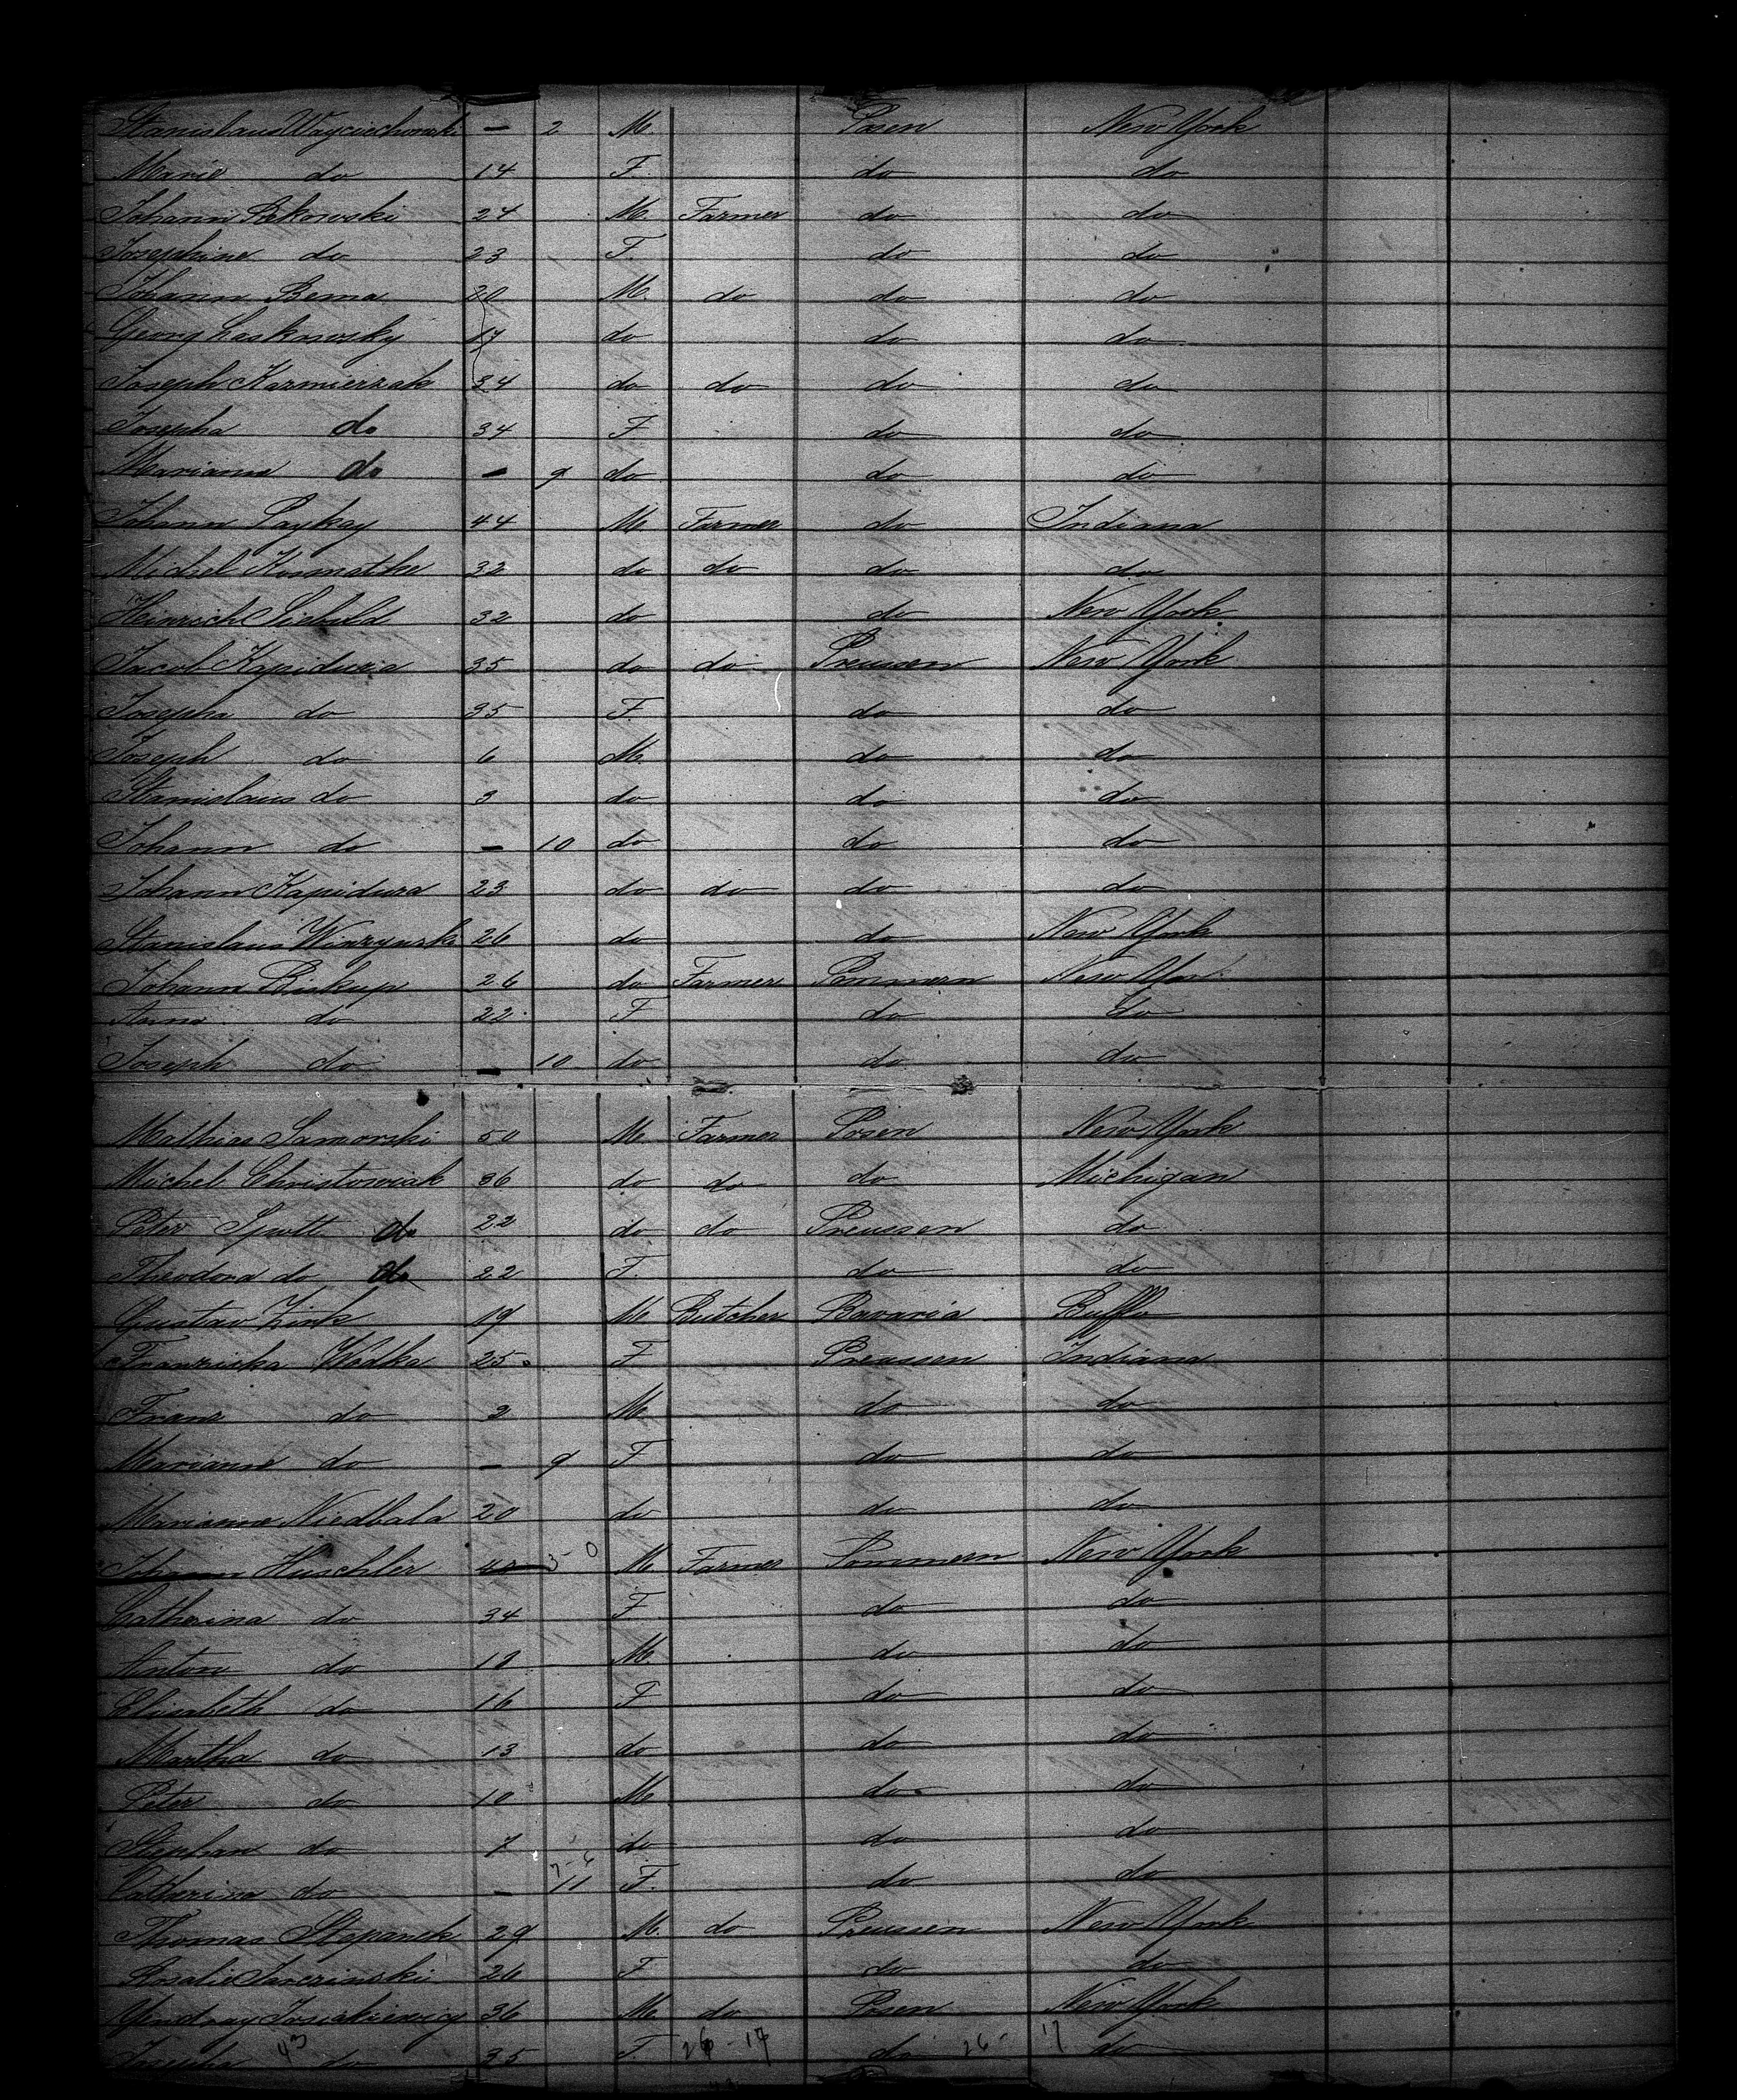 Stanislaus Wayciechowski — 2 M Posen New York
Marie do 14 F. do do
Johann Rekowski 24 M. Farmer do do
Josephine do 23 F. do do
Johann Bema 20 M. do do do
Georg Laskowsky 17 do do do
Joseph Kazmierzak 34 do do do do
Josepha do 34 F do do
Marianna do — 9 do do do
Johann 44 M Farmer do Indiana
Michel 32 do do do do
Heinrich Siebald 32 do do New York
Jacob Kapidura 35 do do Preussen New York
Josepha do 35 F. do do
Joseph do 6 M. do do
Stanislaus do 3 do do do
Johann do — 10 do do do
Johann Kapidura 23 do do do do
Stanislaus 26 do do New York
Johann Biskup 26 do Farmer Pommern New Yor
Anna do 22 F do do
Joseph do — 10 do do do
Mathias Samorski 50 M. Farmer Posen New York
Michel Christowiak 36 do do do Michigan
Peter Spott do 22 do do Preussen do
Theodora do do 22 F. do do
Gustav Zink 19 M Butcher Bavaria Bufflo
Franziska Wodka 25 F Preussen Indiana
Franz do 2 M do do
Marianne do — 9 F do do
Marianna Niedbala 20 do do do
Johann Huschler 30 M. Farmer Pommern New York
Catharina do 34 F do do
Anton do 18 M. do do
Elisabeth do 16 F do do
Martha do 13 do do do
Peter do 10 M do do
Stephan do 7 do do do
Catharina do — 11 F. do do
Thomas Stepanek 29 M. do Preussen New York
Rosalie 26 F do do
Yendray 36 M. do Posen New York
Josepha 43 do 35 F. 26 - 17 do 26 - 17 do